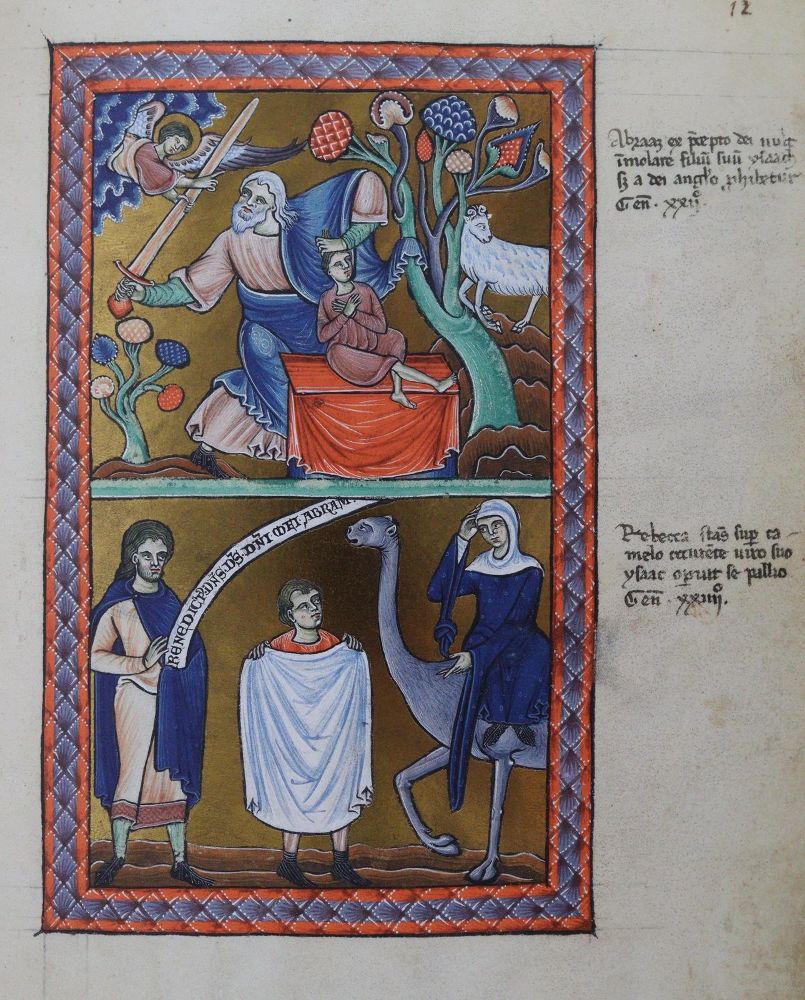 12
Abraaz ex p̄cepto dei vult
īmolare filiū suū ysaac
sꝫ a dei anglo p̄hibetur
Gen̄ · xxijº·
BENEDICT'DN̄S·DS̄·DN̄I MEI ABRAM·
Rebecca stās sup̱ ca
melo occurēte viro suo
ysaac operuit se pallio
Gen̄ · xxiiijº.